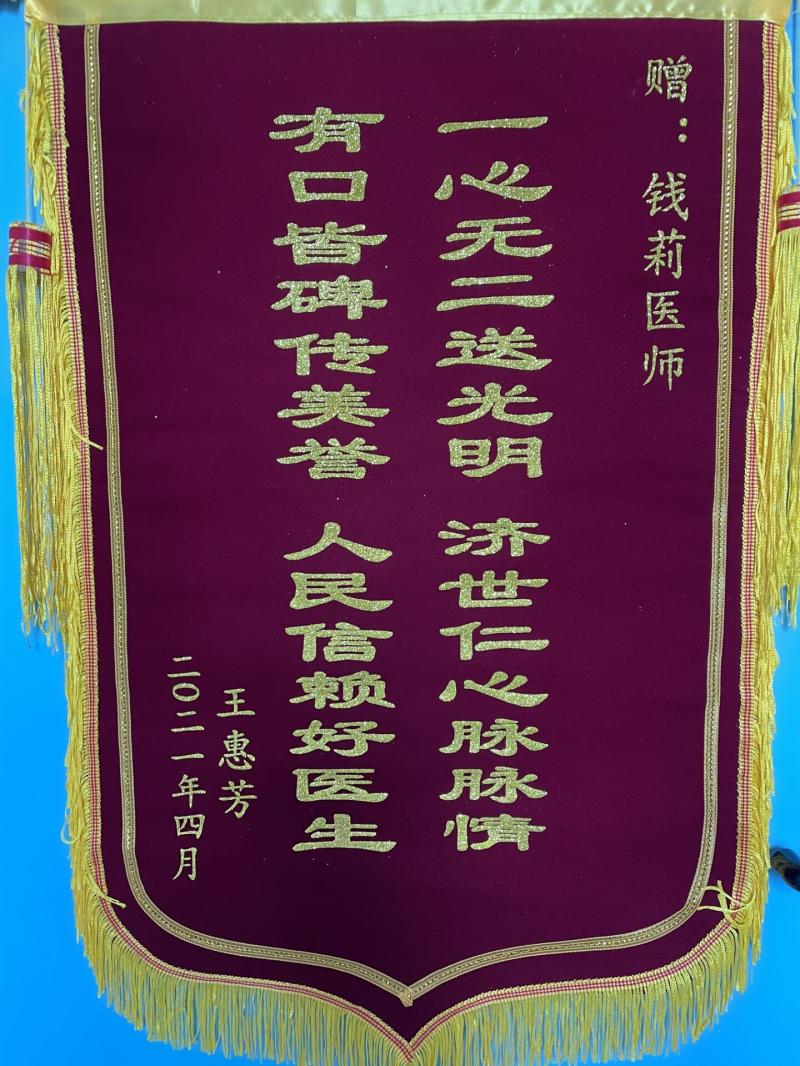 赠：钱莉医师
一心无二送光明 济世仁心脉脉情
有口皆碑传美誉 人民信赖好医生
王惠芳
二〇二一年四月